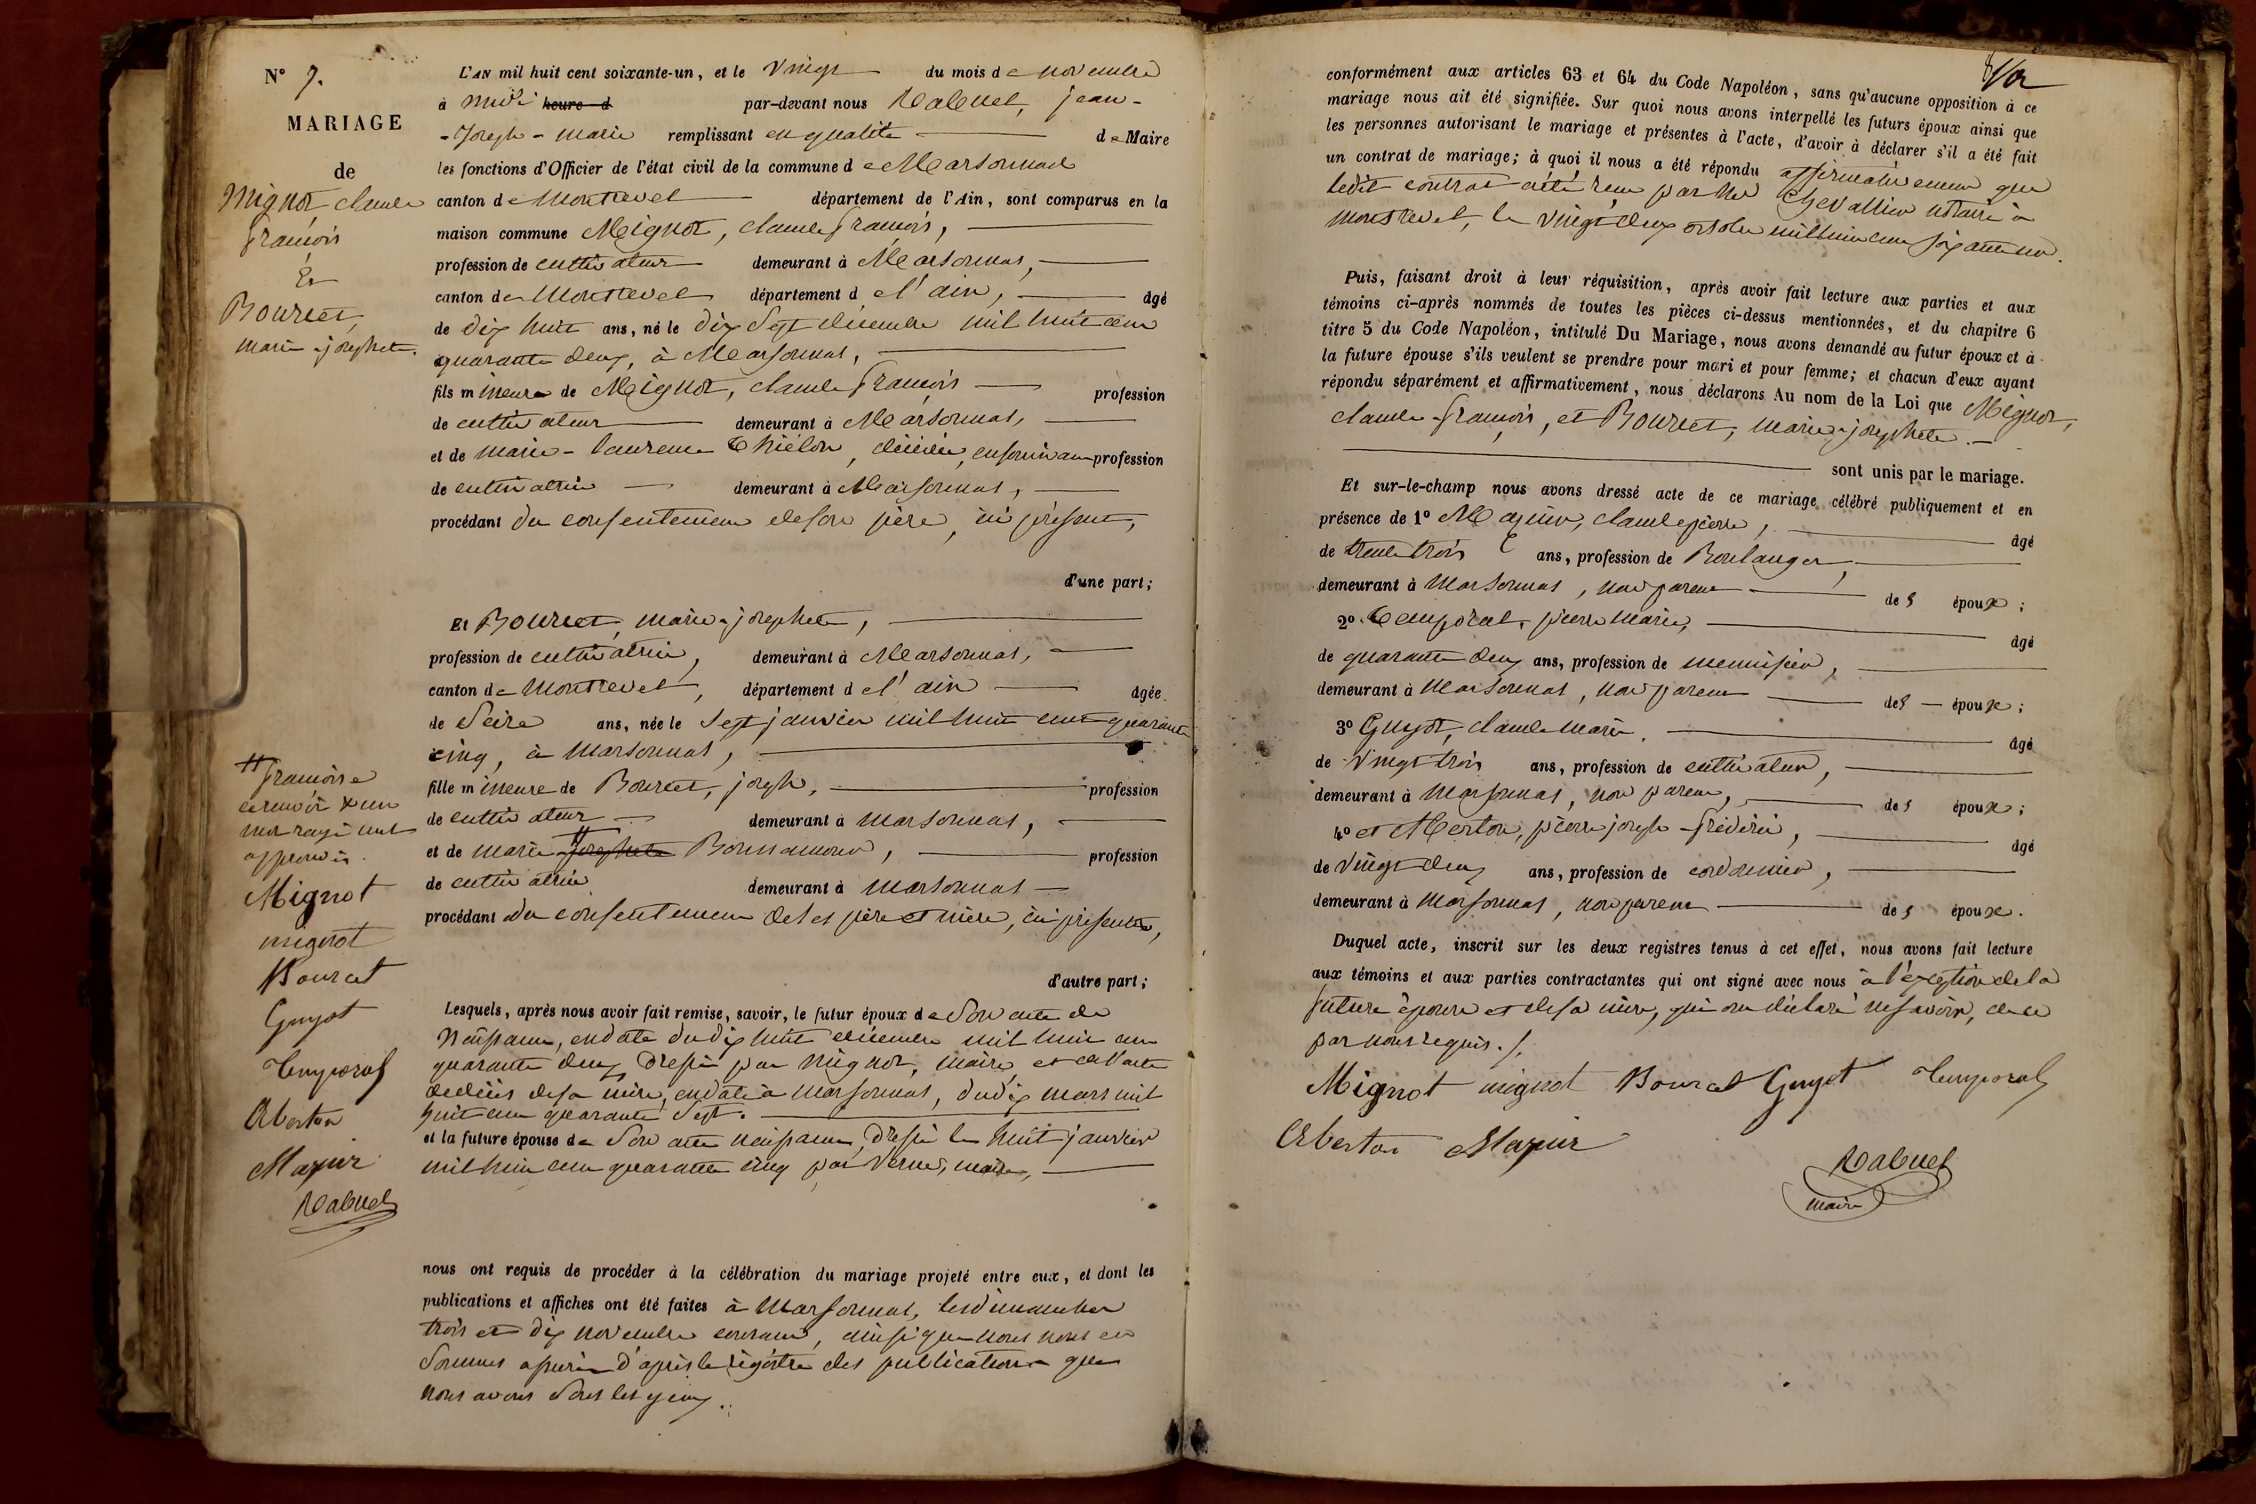 N° 7.
MARIAGE
de
Mignot, Claude
françois
Et
Bourcet,
marie-josephete.
L'AN mil huit cent soixante-un, et le Vingt du mois de novembre
à midi heure d par-devant nous Rabuel, jean-
-Joseph-marie remplissant en qualité de Maire
les fonctions d'Officier de l'état civil de la commune de Marsonnas
canton de Montrevel département de l'Ain, sont comparus en la
maison commune Mignot, claude françois,
profession de cultivateur demeurant à Marsonnas,
canton de Montrevel département de l'ain, âgé
de dix huit ans, né le dix Sept décembre mil huit cent
quarante deux, à Marsonnas,
fils mineur de Mignot, claude françois profession
de cultivateur demeurant à Marsonnas,
et de marie-laurence décédée, en son vivant profession
de cultivatrice demeurant à Marsonnas,
procédant du consentement de son père, ici présent,
d'une part;
Et Bourcet, marie-josephete,
profession de cultivatrice, demeurant à Marsonnas,
canton de Montrevel, département de l'ain âgée
de Seize ans, née le Sept janvier mil huit cent quarante
cinq, à Marsonnas,
fille mineure de Bourcet, joseph, profession
de cultivateur demeurant à Marsonnas,
et de marie josephete Bonnamour, profession
de cultivatrice demeurant à Marsonnas
procédant du consentement de ses père et mère, ici présents,
d'autre part;
Lesquels, après nous avoir fait remise, savoir, le futur époux de Son acte de
Naissance, en date du dix huit décembre mil huit cent
quarante deux, Dressé par Mignot, maire, et de l'acte
décès de sa mère, en date à Marsonnas, du dix mars mil
huit cent quarante Sept.
et la future épouse de Son acte naissance, Dressé le huit janvier
mil huit cent quarante cinq par Verne, maire,
nous ont requis de procéder à la célébration du mariage projeté entre eux, et dont les
publications et affiches ont été faites à Marsonnas, les dimanches
trois et dix novembre courant, ainsi que nous nous en
Sommes assurés d'après le régistre des publications que
nous avons Sous les yeux.
françoise
ce renvoi & un
mot rayé nul
approuvés.
Mignot
mignot
Bourcet
Guyot
Temporal
Rabuel
conformément aux articles 63 et 64 du Code Napoléon, sans qu'aucune opposition à ce
mariage nous ait été signifiée. Sur quoi nous avons interpellé les futurs époux ainsi que
les personnes autorisant le mariage et présentes à l'acte, d'avoir à déclarer s'il a été fait
un contrat de mariage; à quoi il nous a été répondu affirmativement que
ledit contrat a été reçu par Me Chevallier notaire à
Montrevel, le vingt deux octobre mil huit cent soixante un.
Puis, faisant droit à leur réquisition, après avoir fait lecture aux parties et aux
témoins ci-après nommés de toutes les pièces ci-dessus mentionnées, et du chapitre 6
titre 5 du Code Napoléon, intitulé Du Mariage, nous avons demandé au futur époux et à
la future épouse s'ils veulent se prendre pour mari et pour femme; et chacun d'eux ayant
répondu séparément et affirmativement, nous déclarons Au nom de la Loi que Mignot,
claude-françois, et Bourcet, marie-josephete.
sont unis par le mariage.
Et sur-le-champ nous avons dressé acte de ce mariage célébré publiquement et en
présence de 1° Mazuir, claude pierre, âgé
de trente trois ans, profession de Boulanger,
demeurant à Marsonnas, non parent des époux;
2° Temporal, pierre marie, âgé
de quarante deux ans, profession de menuisier,
demeurant à Marsonnas, non parent des époux;
3° Guyot, claude marie, âgé
de Vingt trois ans, profession de cultivateur,
demeurant à Marsonnas, non parent, des époux;
4° et pierre joseph frédéric, âgé
de Vingt deux ans, profession de cordonnier,
demeurant à Marsonnas, non parent des époux.
Duquel acte, inscrit sur les deux registres tenus à cet effet, nous avons fait lecture
aux témoins et aux parties contractantes qui ont signé avec nous à l'exception de la
future épouse et de sa mère, qui ont déclaré ne savoir, de ce
par nous requis.
Mignot mignot Bourcet Guyot Temporal
Mazuir
Rabuel
maire